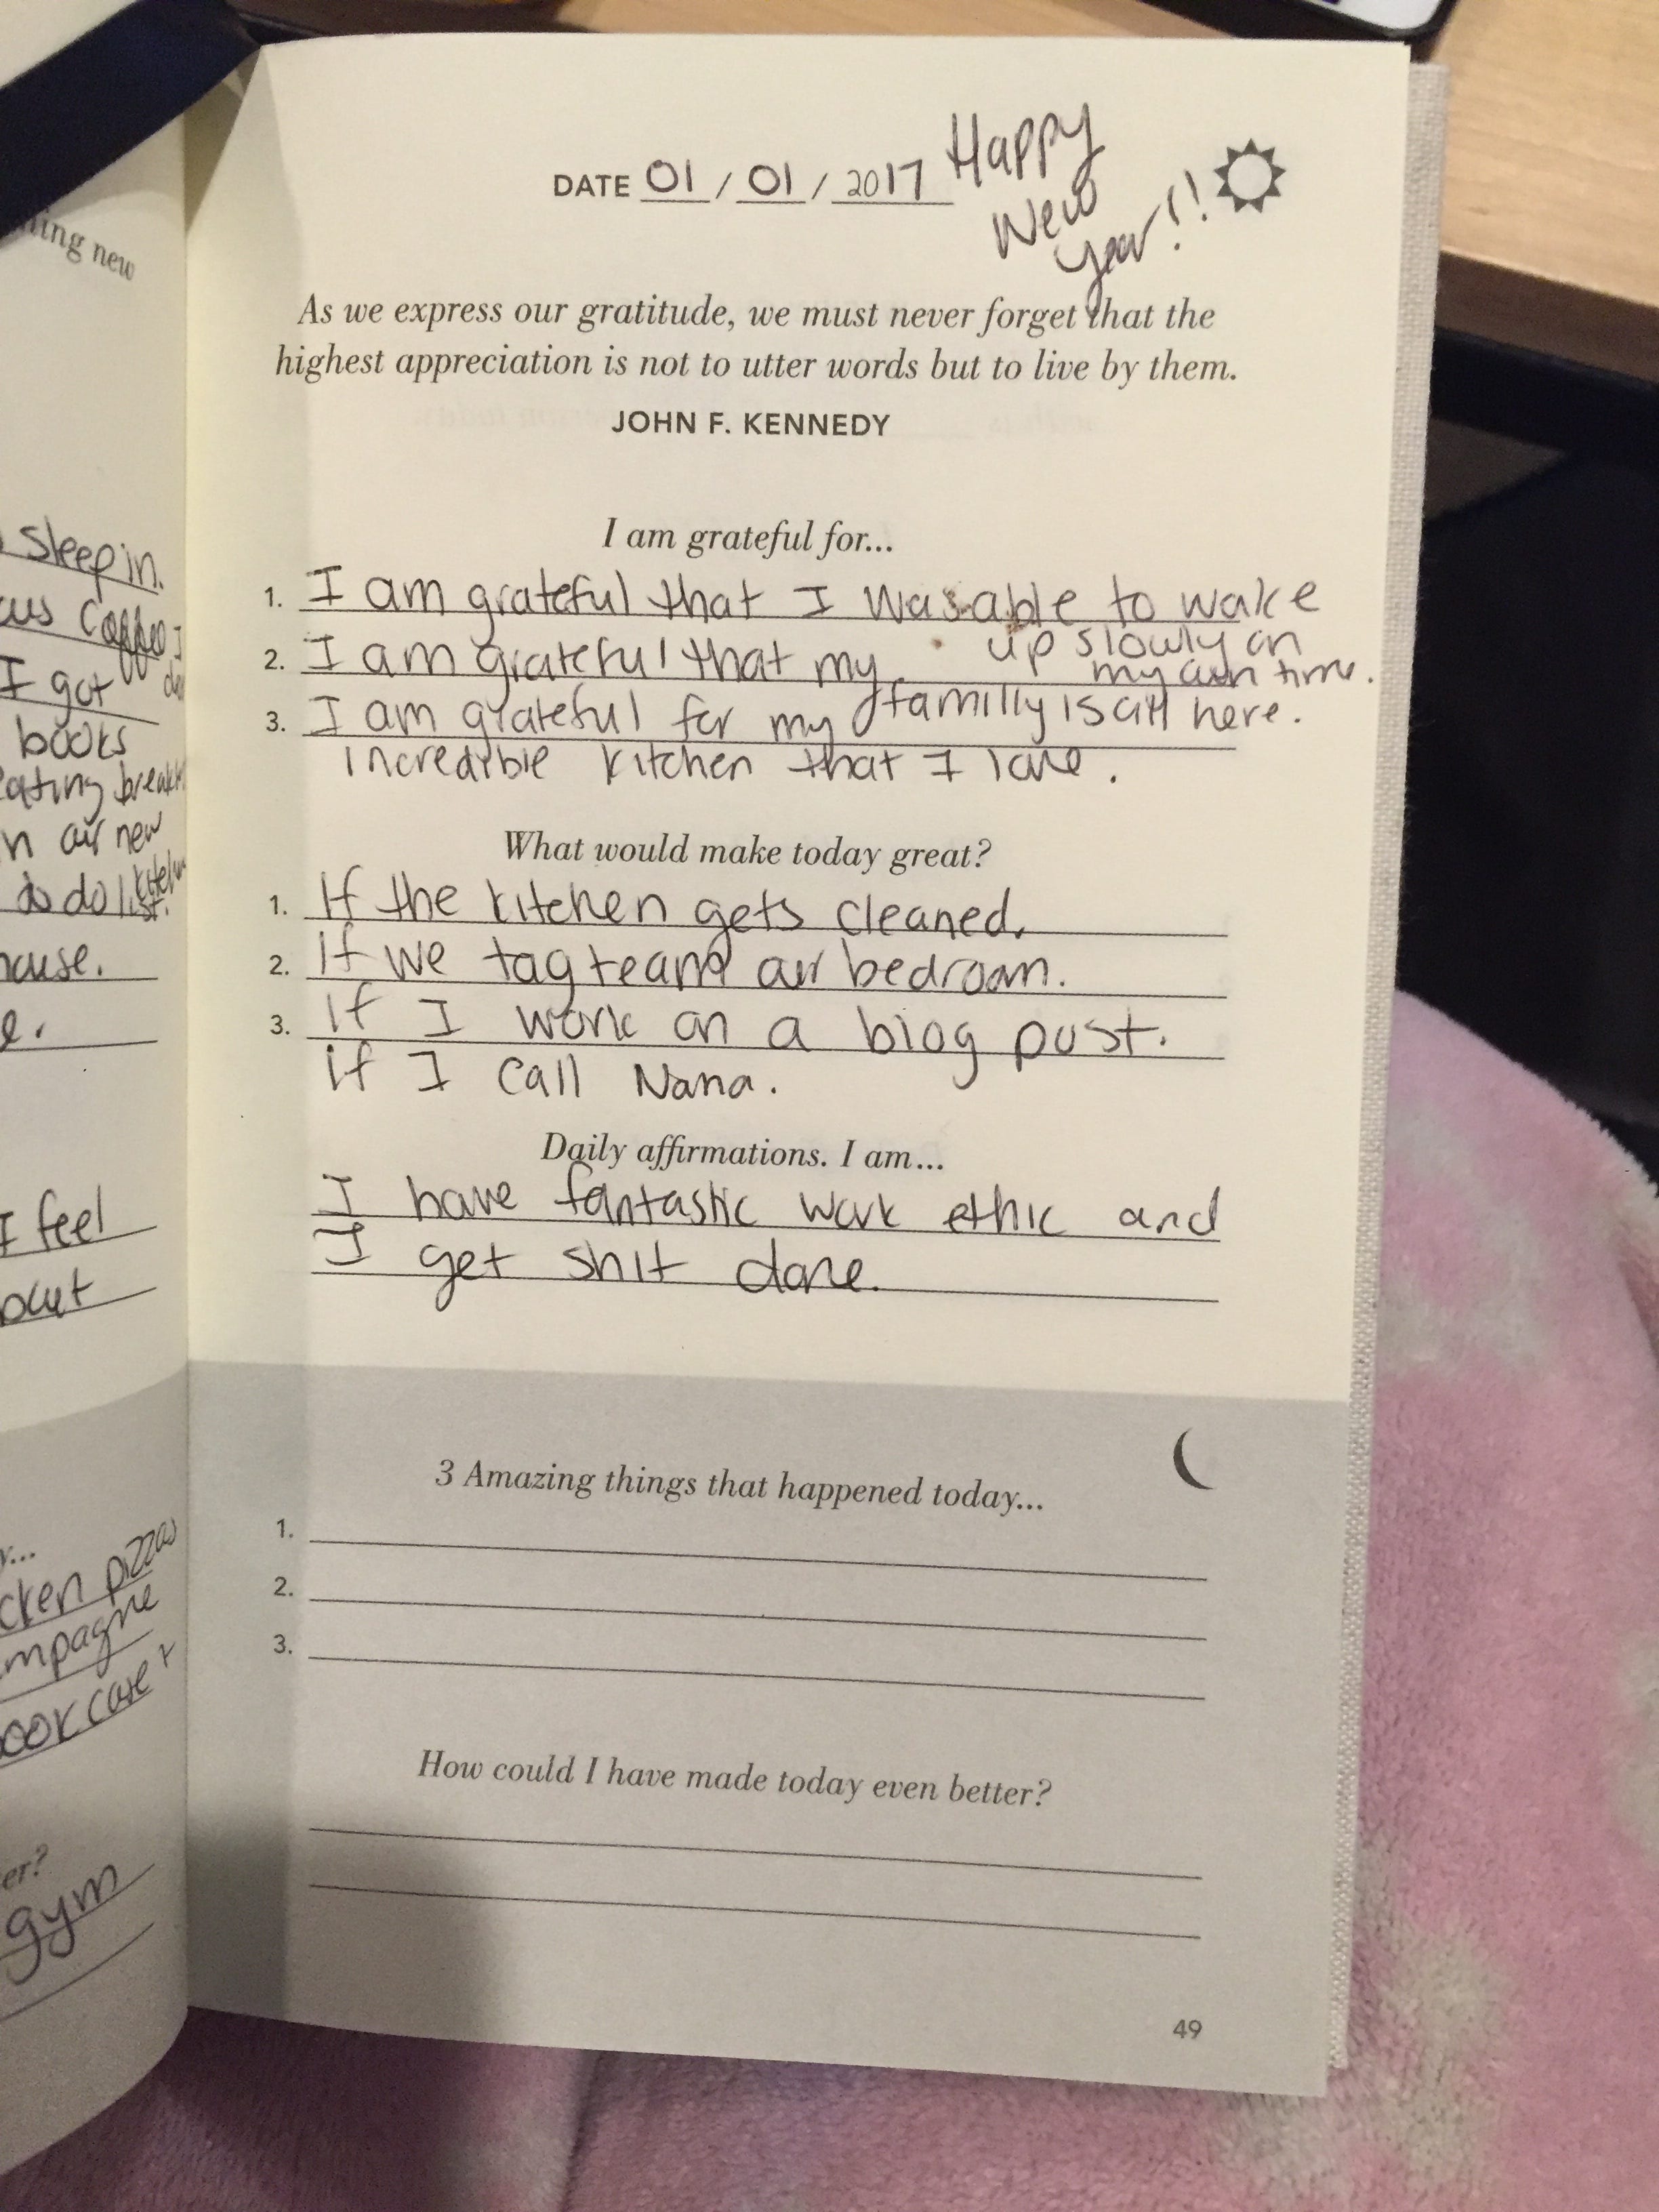 ning new
sleep in.
Coffee I
I got
books
eating
n air new
to do list.
house.
e.
I feel
out
y...
cken pizzas
mpagne
er?
gym
DATE 01 / 01 / 2017
Happy
New
Year!!
As we express our gratitude, we must never forget that the
highest appreciation is not to utter words but to live by them.
JOHN F. KENNEDY
I am grateful for...
1. I am grateful that I was able to wake
up slowly on
my own time.
2. I am grateful that my
familly is all here.
3. I am grateful for my
incredible kitchen that I love.
What would make today great?
1. If the kitchen gets cleaned.
2. If we tag team our bedroom.
3. If I work on a blog post.
if I call Nana.
Daily affirmations. I am...
I have fantastic work ethic and
I get shit done.
3 Amazing things that happened today...
1.
2.
3.
How could I have made today even better?
49